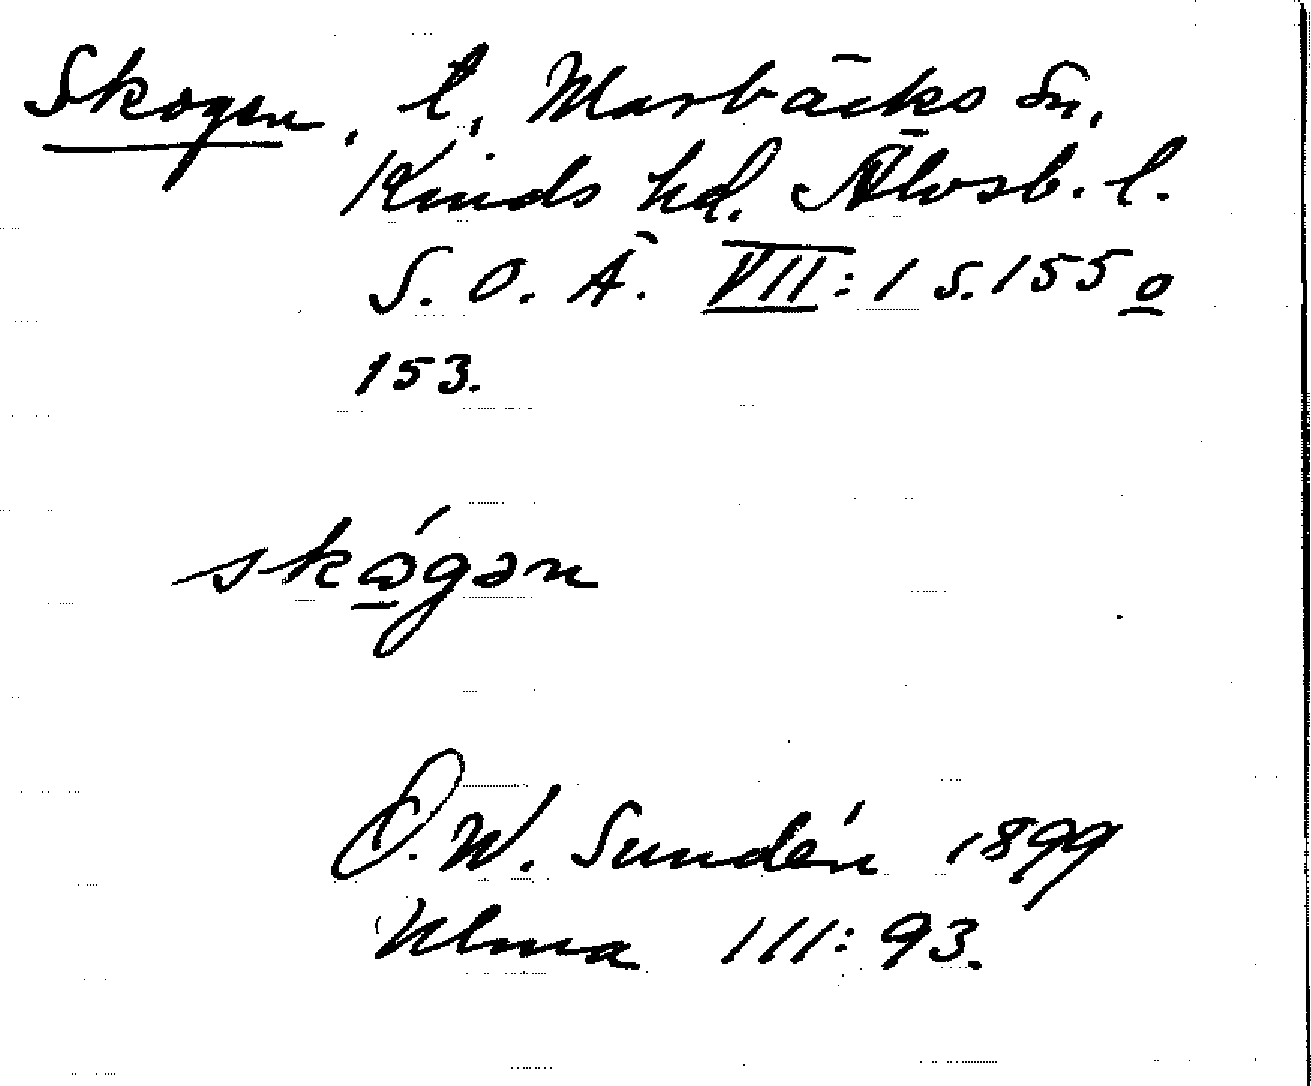 Skogen, l, Marbäcks sn,
Kinds hd. Älvsb. l.
S. O. Ä. VII: 1 s. 155 o
153.
skógən
D. W. Sundén 1899
Ulma 111: 93.